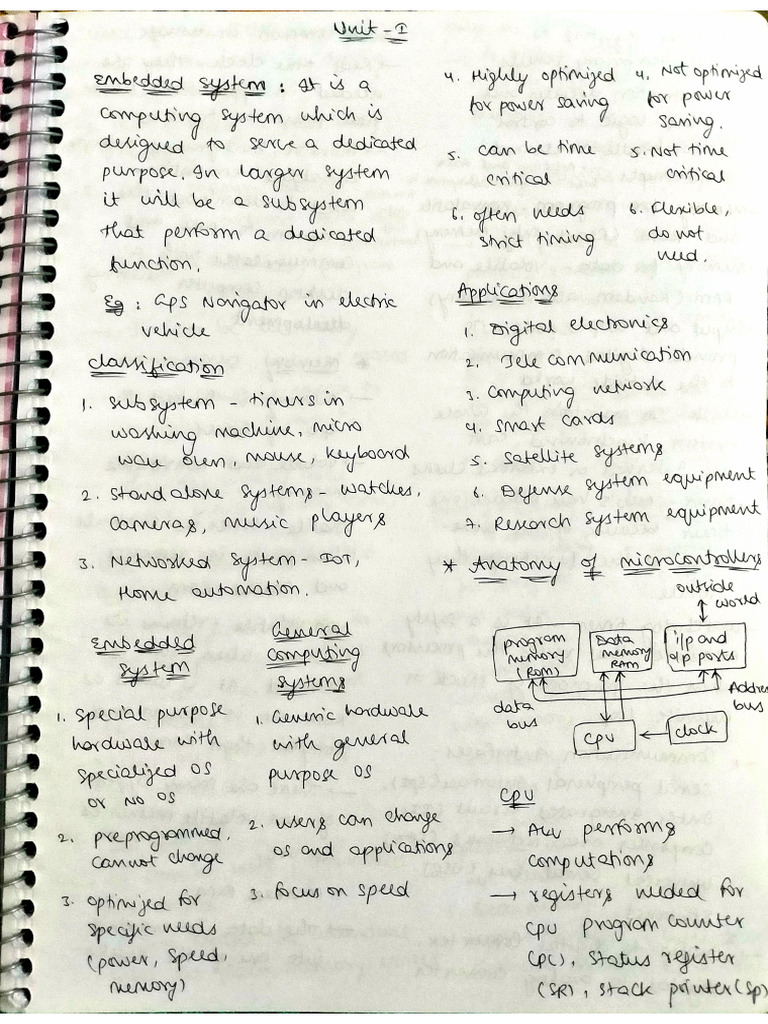 Unit - I
Embedded System : It is a
computing system which is
designed to serve a dedicated
purpose. In larger system
it will be a subsystem
that perform a dedicated
function.
Eg : GPS Navigator in electric
vehicle
classification
1. subsystem - timers in
washing machine, micro
wave oven, mouse, keyboard
2. Stand alone systems - watches,
cameras, music players
3. Networked System - IOT,
Home automation.
Embedded
System
1. Special purpose
hardware with
specialized OS
or no OS
2. preprogrammed,
cannot change
3. optimized for
specific needs
(power, speed,
memory)
General
Computing
Systems
1. Generic hardware
with general
purpose OS
2. users can change
OS and applications
3. Focus on speed
4. Highly optimized
for power saving
5. can be time
critical
6. often needs
strict timing
4. Not optimized
for power
saving.
5. Not time
critical
6. Flexible,
do not
need.
Applications
1. Digital electronics
2. Tele communication
3. Computing network
4. Smart cards
5. Satellite systems
6. Defense system equipment
7. Research system equipment
* Anatomy of microcontrollers
outside
world
program
memory
(ROM)
Data
memory
RAM
i/p and
o/p ports
data
bus
Address
bus
CPU
clock
CPU
→ ALU performs
computations
→ registers needed for
CPU program counter
(PC), Status register
(SR), stack printer (SP)